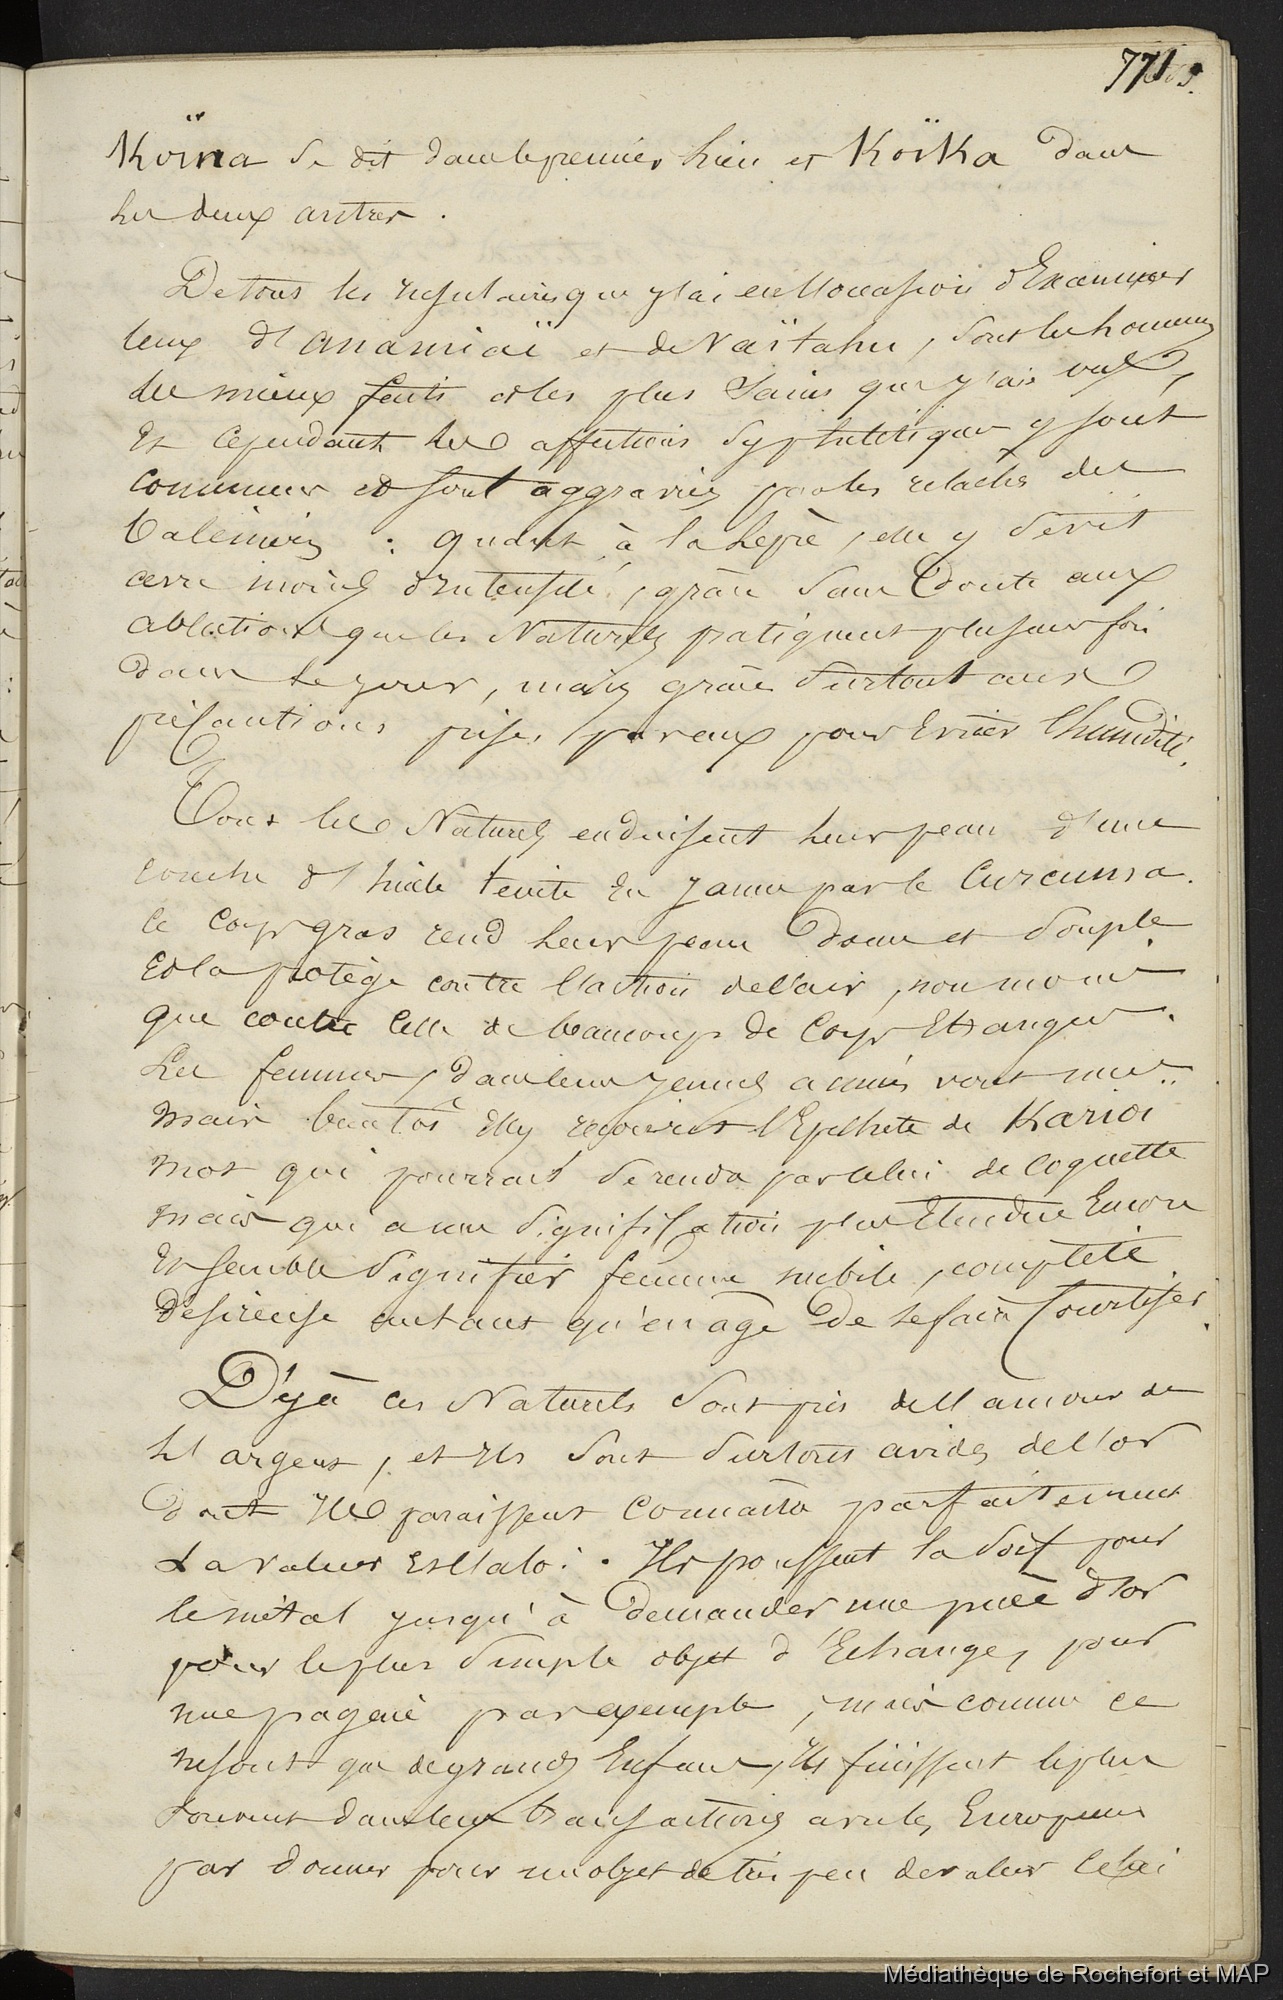 771
Koïna se dit dans le premier lieu et Koïka dans
les deux autres.
De tous les insulaires que j'ai eu l'occasion d'Examiner
ceux d'anamiaï et de Vaïtahu, sont les hommes
les mieux faits et les plus sains que j'ais vus,
Et cependant les affections syphilitiques y sont
communes et sont aggravées par les relâches des
baleiniers : quant à la lèpre, elle y sévit
avec moins d'intensité, grâce sans doute aux
ablutions que les Naturels pratiquent plusieurs fois
dans le jour, mais grâce surtout aux
précautions prises par eux pour Eviter l'humidité.
Tous les Naturels enduisent leur peau d'une
couche d'huile teinte En jaune par le Curcuma.
le corps gras rend leur peau douce et souple
Et la protège contre l'action de l'air, non moins
que contre celle de beaucoup de corps Etrangers.
Les femmes, dans leur jeunes années vont nues..
mais bientôt elles reçoivent l'Epithete de Karioi
mot qui pourrait se rendre par celui de coquette
mais qui a une signification plus Etendue Encore
Et semble signifier femme nubile, complète
désireuse autant qu'en âge de se faire Courtiser.
Déjà ces Naturels sont pris de l'amour de
l'argent, et ils sont surtout avides de l'or
dont ils paraissent connaître parfaitement
La valeur Et l'aloi. Ils poussent la soif pour
le métal jusqu'à demander une pièce d'or
pour le plus simple objet d'Echange, pour
une pagaie par exemple, mais comme ce
ne sont que de grands Enfans, ils finissent le plus
souvent dans leurs transactions avec les Européens
par donner pour un objet de très peu de valeur celui
Médiathèque de Rochefort et MAP